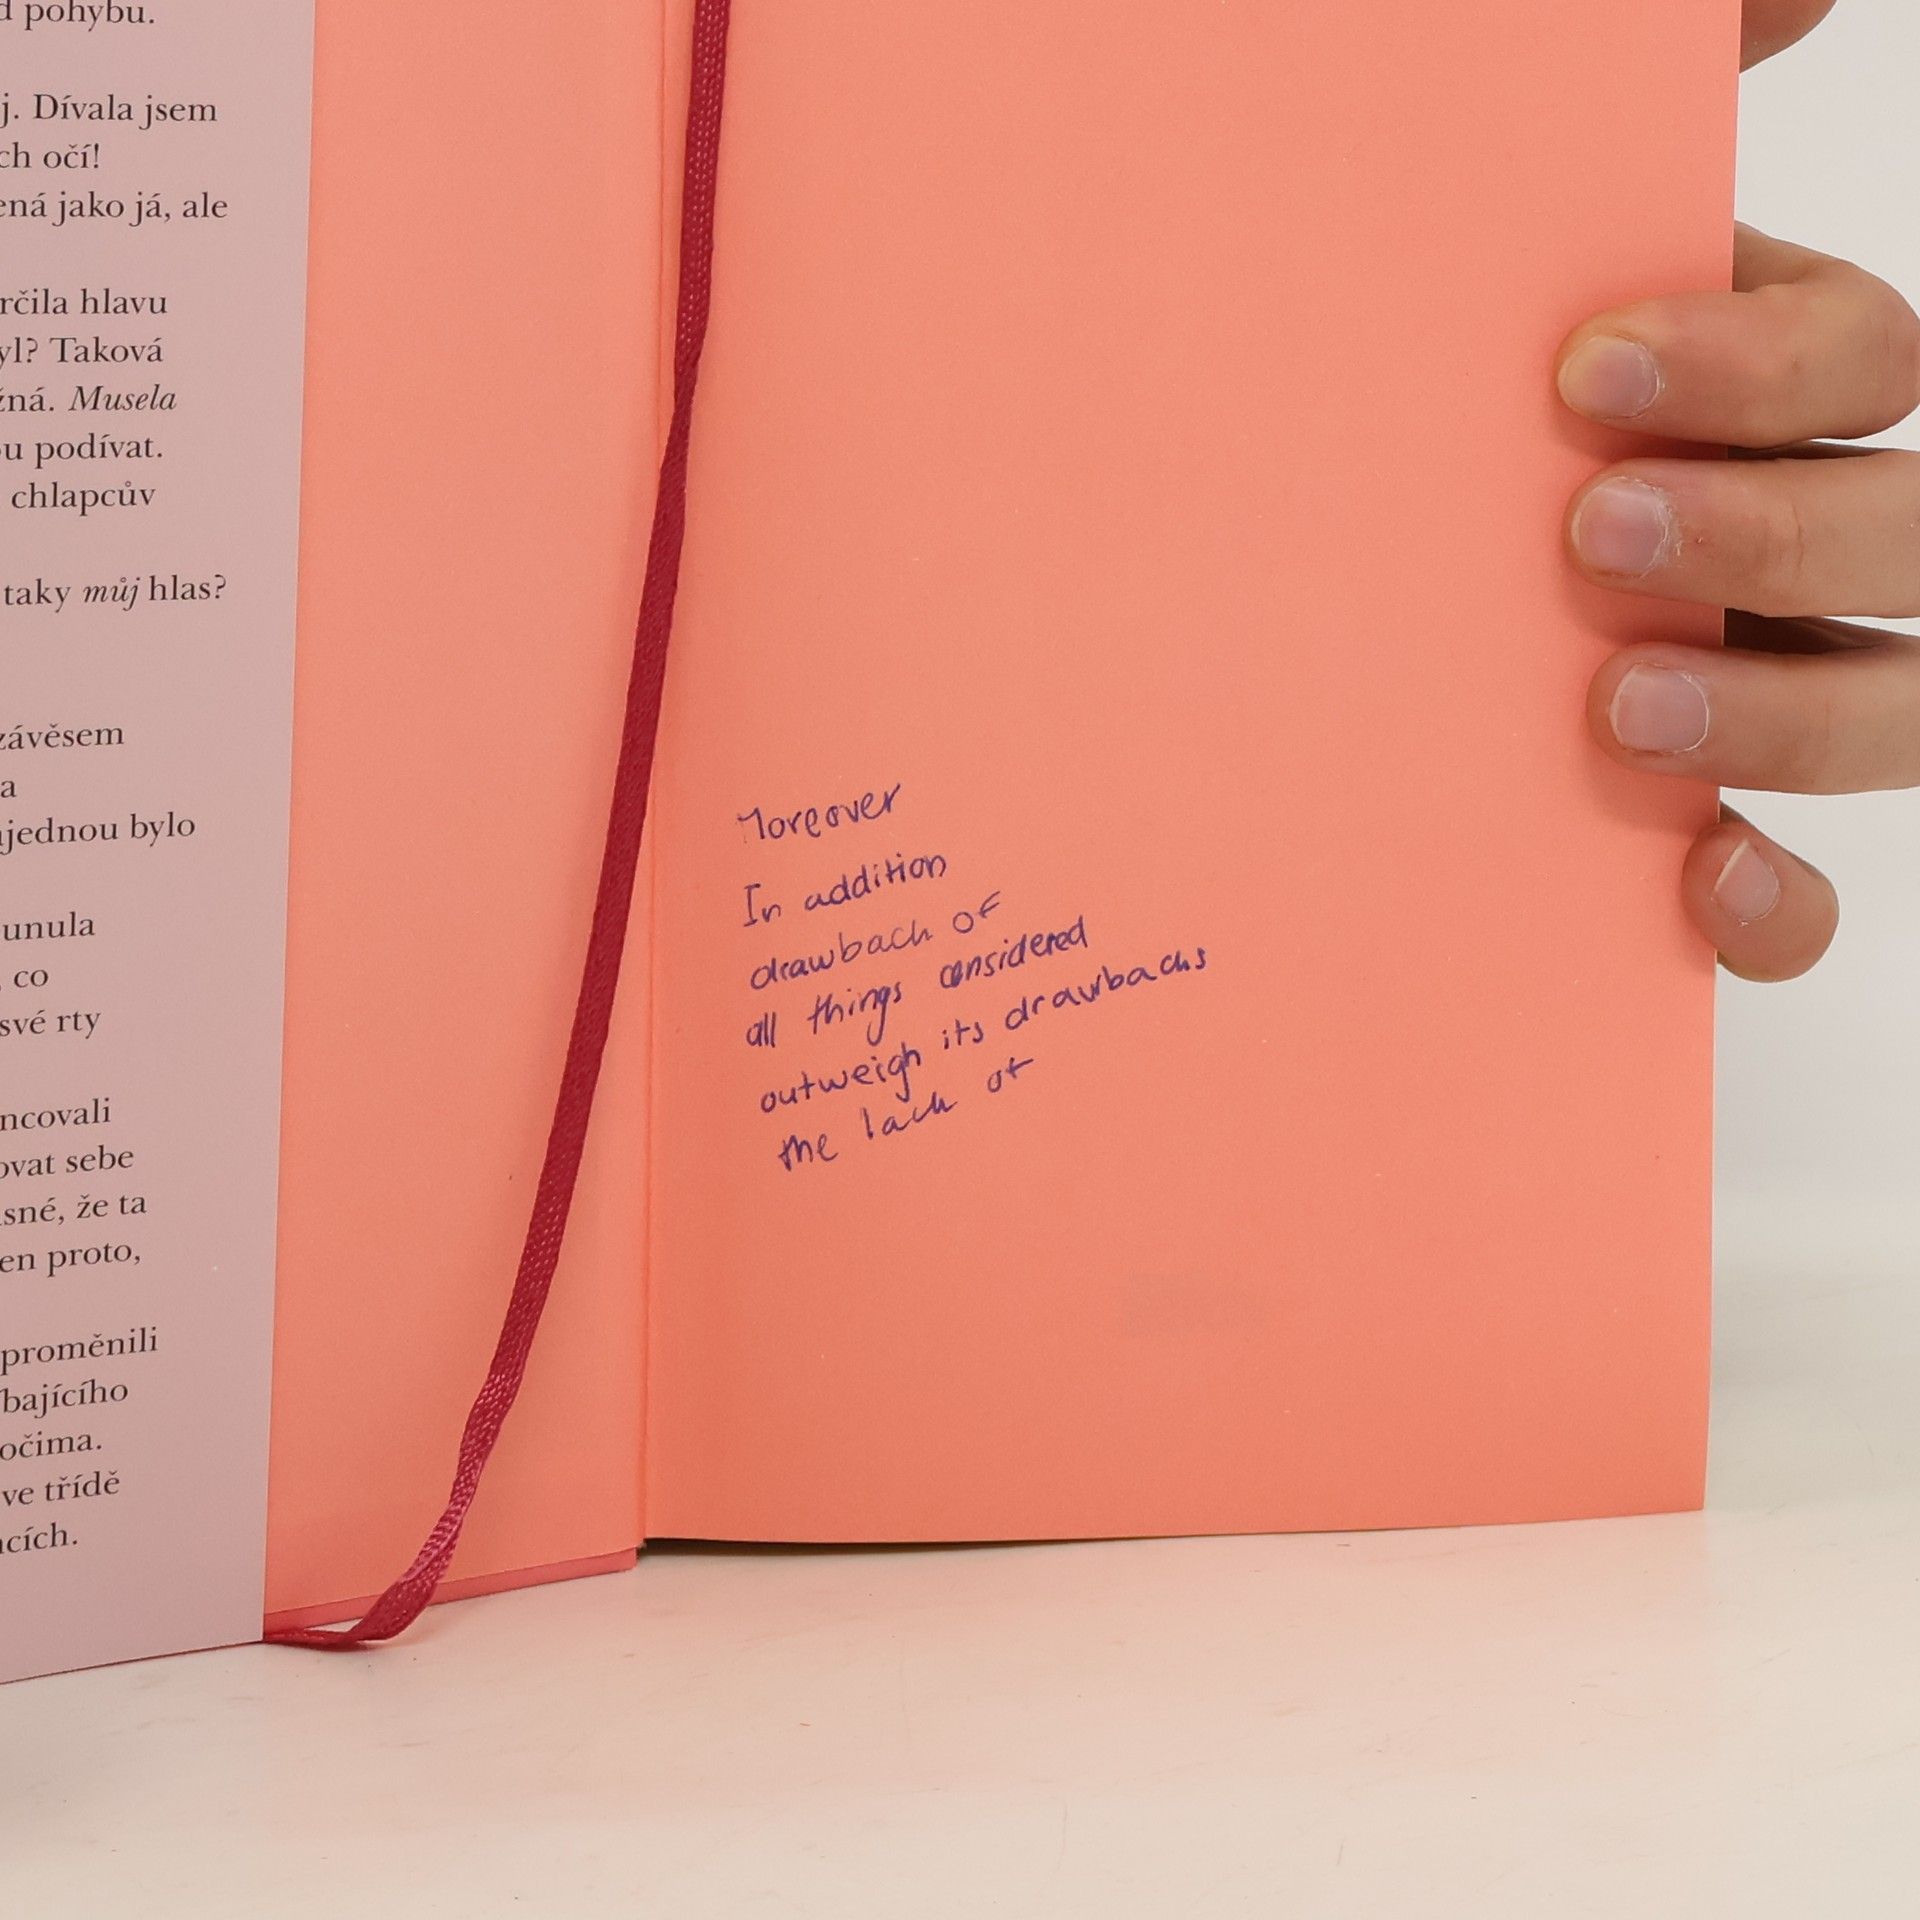 d pohybu.
j. Dívala jsem
ch očí!
ená jako já, ale
rčila hlavu
yl? Taková
žná. Musela
ou podívat.
chlapcův
taky můj hlas?
závěsem
a
ajednou bylo
unula
, co
své rty
ncovali
ovat sebe
asné, že ta
en proto,
proměnili
bajícího
očima.
ve třídě
acích.
Moreover
In addition
drawback of
all things considered
outweigh its drawbacks
the lack of